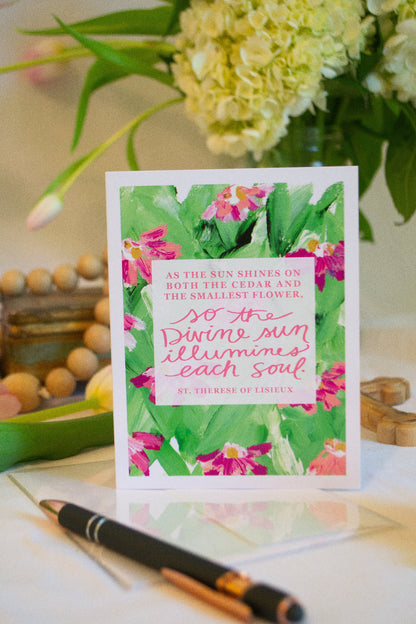 AS THE SUN SHINES ON
BOTH THE CEDAR AND
THE SMALLEST FLOWER,
so the
Divine sun
illumines
each soul.
ST. THERESE OF LISIEUX